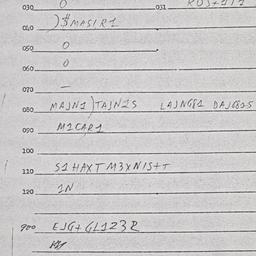 030 0 031
040 )$MASIR1
050 0
060 0
070 –
080 MAJN1)TAJN2S LAJNG81 DAJG825
090 M1CAR1
100
110 S1HAXTM3XNIS+T
120 1N
900 EJG+GL123R